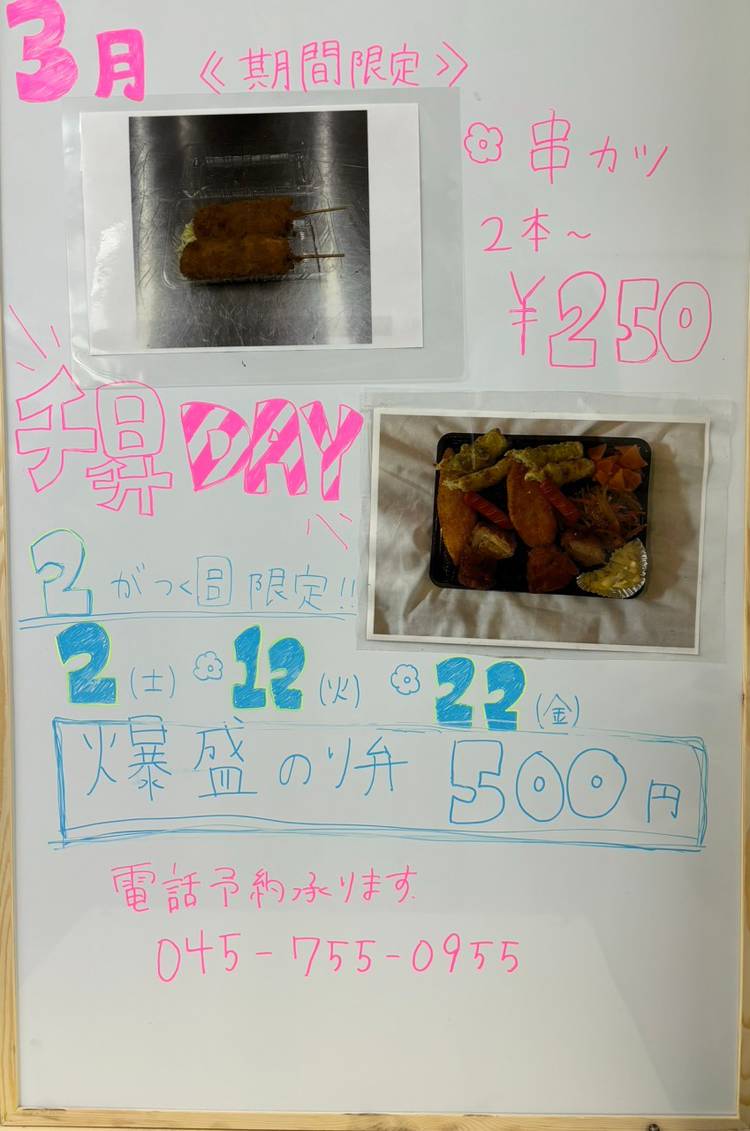 3月 《期間限定》
串カツ
2本～
¥250
千昇DAY
2がつく日限定!!
2(土) 12(火) 22(金)
爆盛のり弁 500円
電話予約承ります
045-755-0955